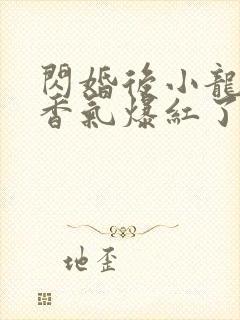 閃婚後小龍
香氣爆紅了
地歪